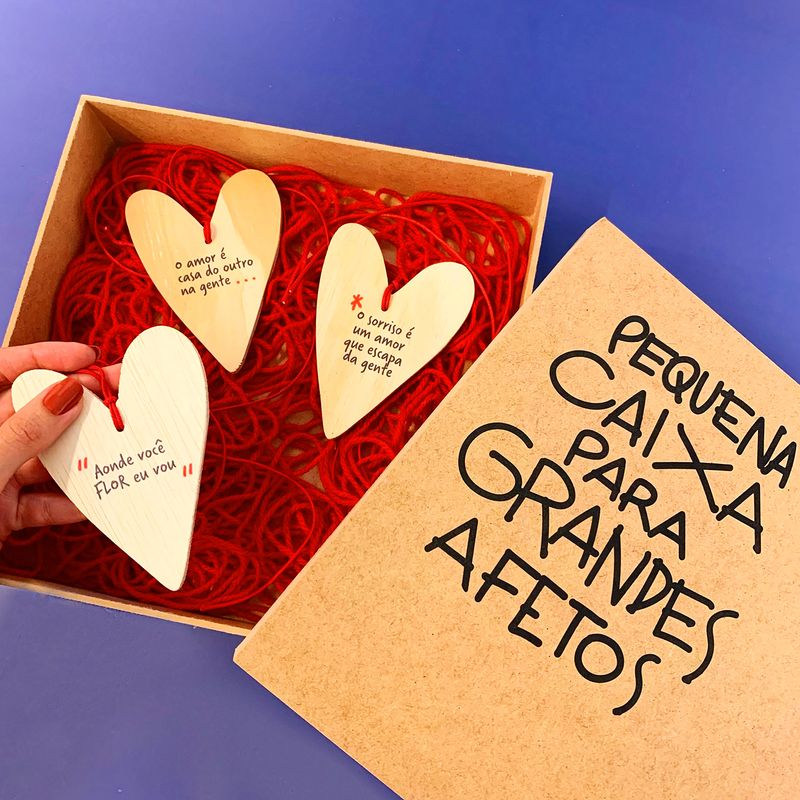 o amor é
casa do outro
na gente ...
* o sorriso é
um amor
que escapa
da gente
" Aonde você
FLOR eu vou "
PEQUENA
CAIXA
PARA
GRANDES
AFETOS